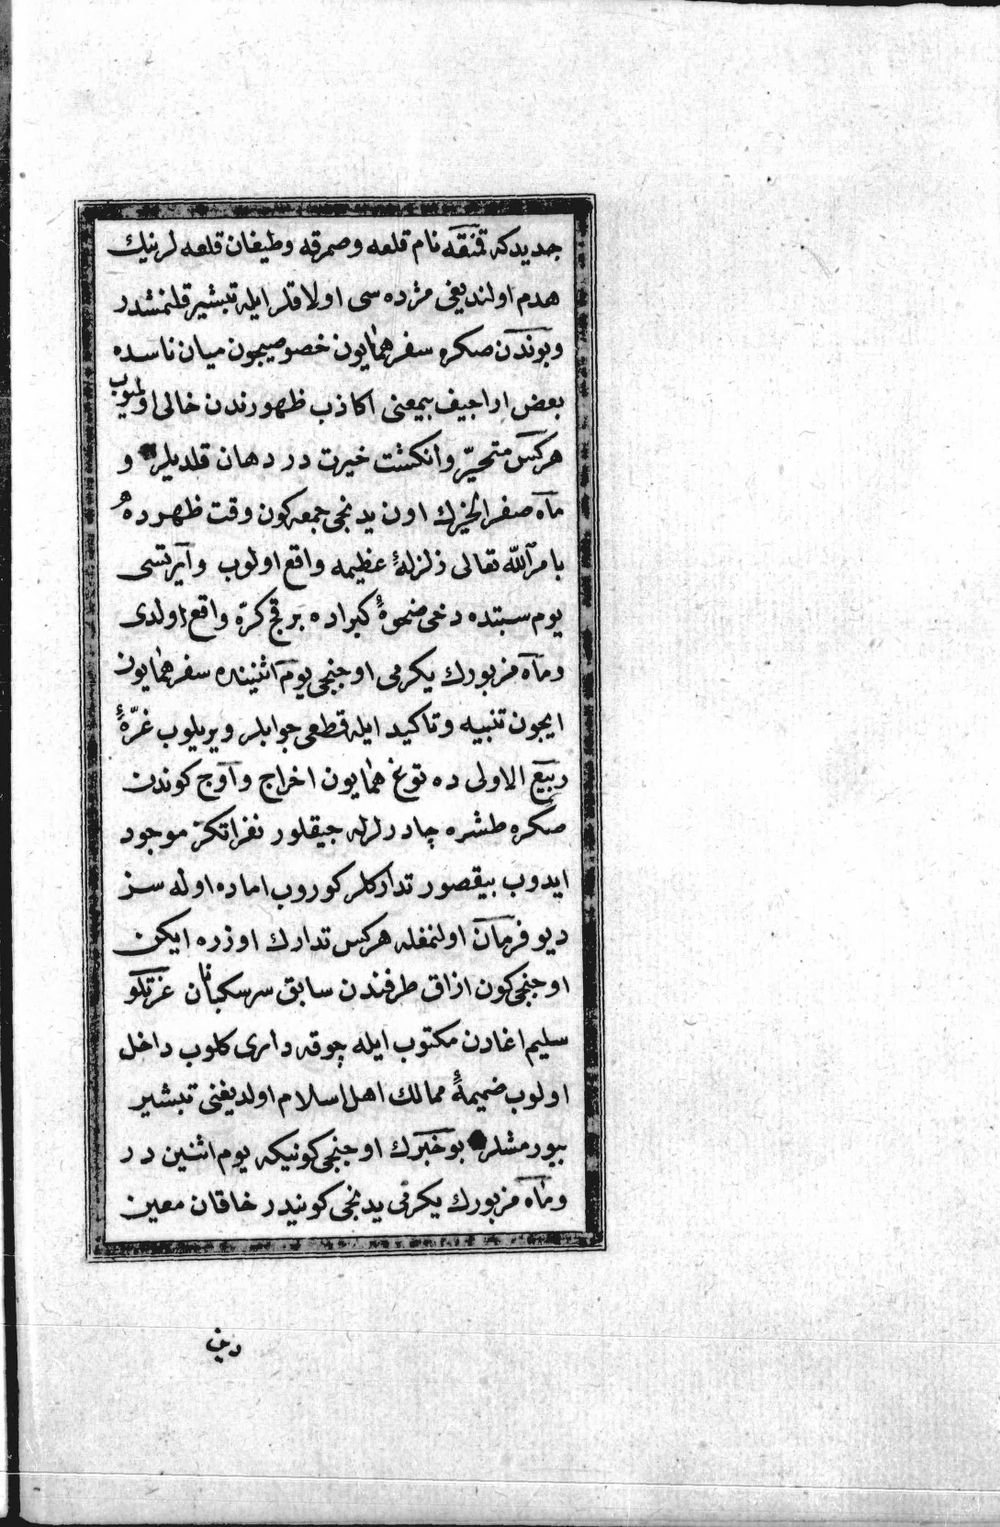 جديدكه قمنقه نام قلعه وصمرقه وطيغان قلعه لرينك
هدم اولنديغى مژده سى اولاقلر ايله تبشير قلنمشدر
وبوندن صكره سفر همايون خصوصيچون ميان ناسده
بعض اراجيف بيمعنى اكاذب ظهورندن خالى اولميوب
هركس متحيّر وانكشت خيرت در دهان قلديلر و
ماه صفر الخيرك اون يدنجى جمعه كون وقت ظهرده
بامر الله تعالى زلزلهٔ عظيمه واقع اولوب وآيرتسى
يوم سبتده دخى ضحوهٔ كبراده بر قچ كرّه واقع اولدى
وماه مزبورك يكرمى اوجنجى يوم اثنينده سفر همايون
ايچون تنبيه وتاكيد ايله قطعى جوابلر ويريلوب غرّهٔ
ربيع الاولى ده توغ همايون اخراج وآوج كوندن
صكره طشره چادرلرله جيقلور نفراتكز موجود
ايدوب بيقصور تداركلر كوروب اماده اوله سز
ديو فرمان اولنمغله هركس تدارك اوزره ايكن
اوجنجى كون ازاق طرفندن سابق سرسكبانان عزتلو
سليم اغادن مكتوب ايله چوقه دارى كلوب داخل
اولوب ضميمهٔ ممالك اهل اسلام اولديغنى تبشير
بيورمشلر بو خبرك اوجنجى كونيكه يوم اثنين در
وماه مزبورك يكرمى يدنجى كونيدر خاقان معين
دين